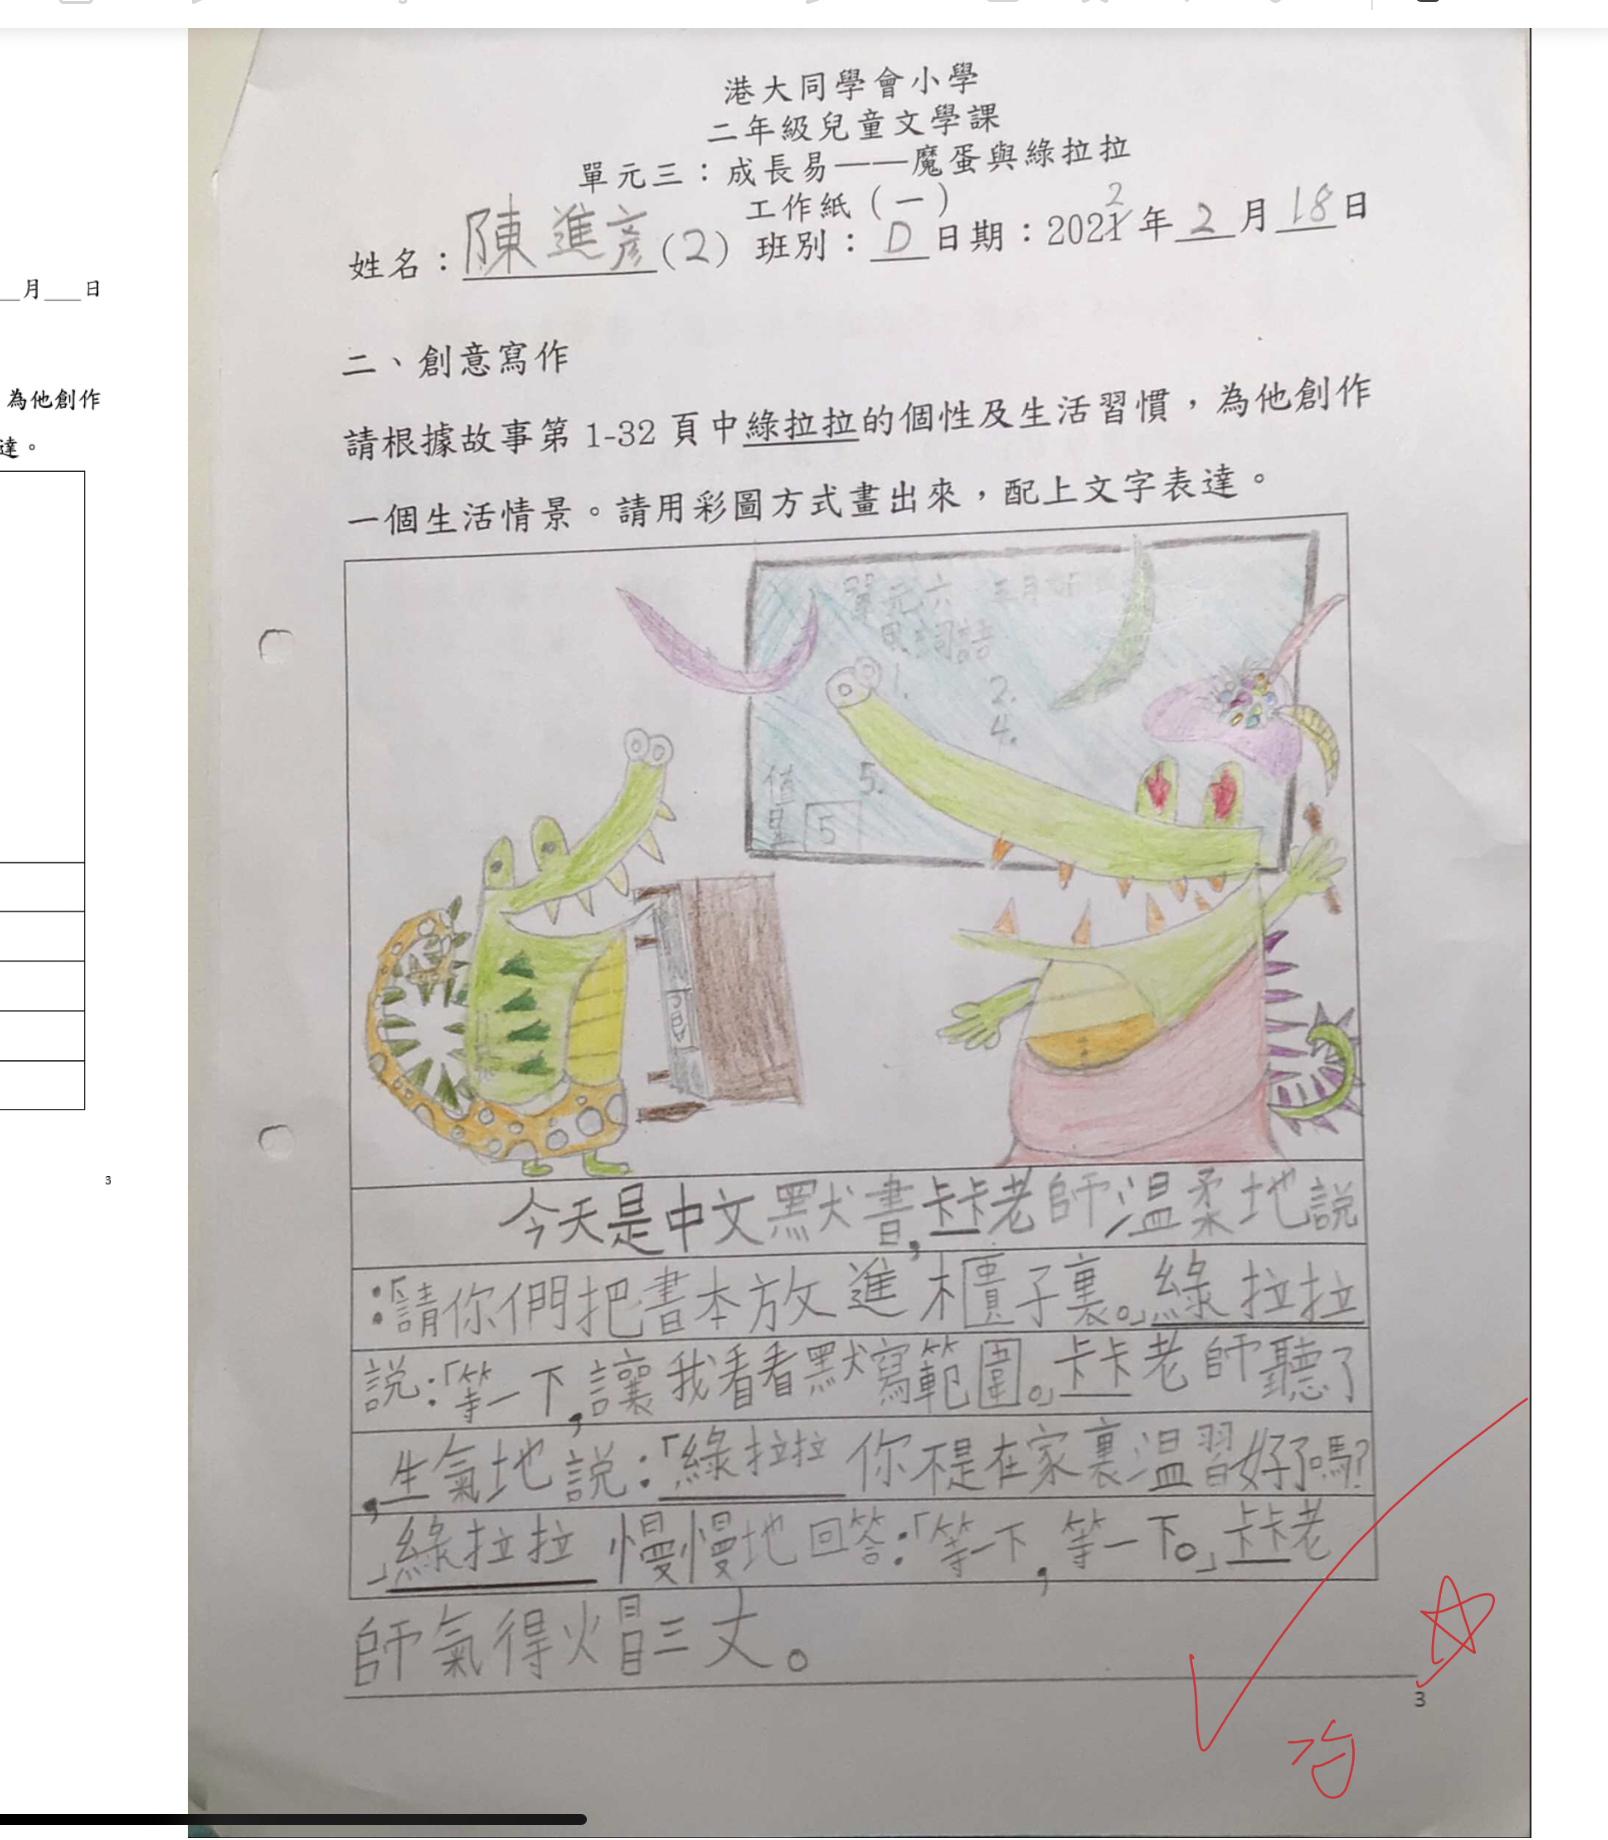 港大同學會小學
二年級兒童文學課
單元三：成長易——魔蛋與綠拉拉
工作紙（一）
姓名：陳進彥(2) 班別：D 日期：2022年2月18日
二、創意寫作
請根據故事第 1-32 頁中綠拉拉的個性及生活習慣，為他創作
一個生活情景。請用彩圖方式畫出來，配上文字表達。
單元六 三月
詞語
1. 2.
4.
5.
值
5
今天是中文默書，卡卡老師溫柔地説
：「請你們把書本放進櫃子裏。」綠拉拉
説：「等一下，讓我看看默寫範圍。」卡卡老師聽了
，生氣地説：「綠拉拉你不是在家裏溫習好了嗎？
」綠拉拉慢慢地回答：「等一下，等一下。」卡卡老
師氣得火冒三丈。
3
月 日
為他創作
達。
3